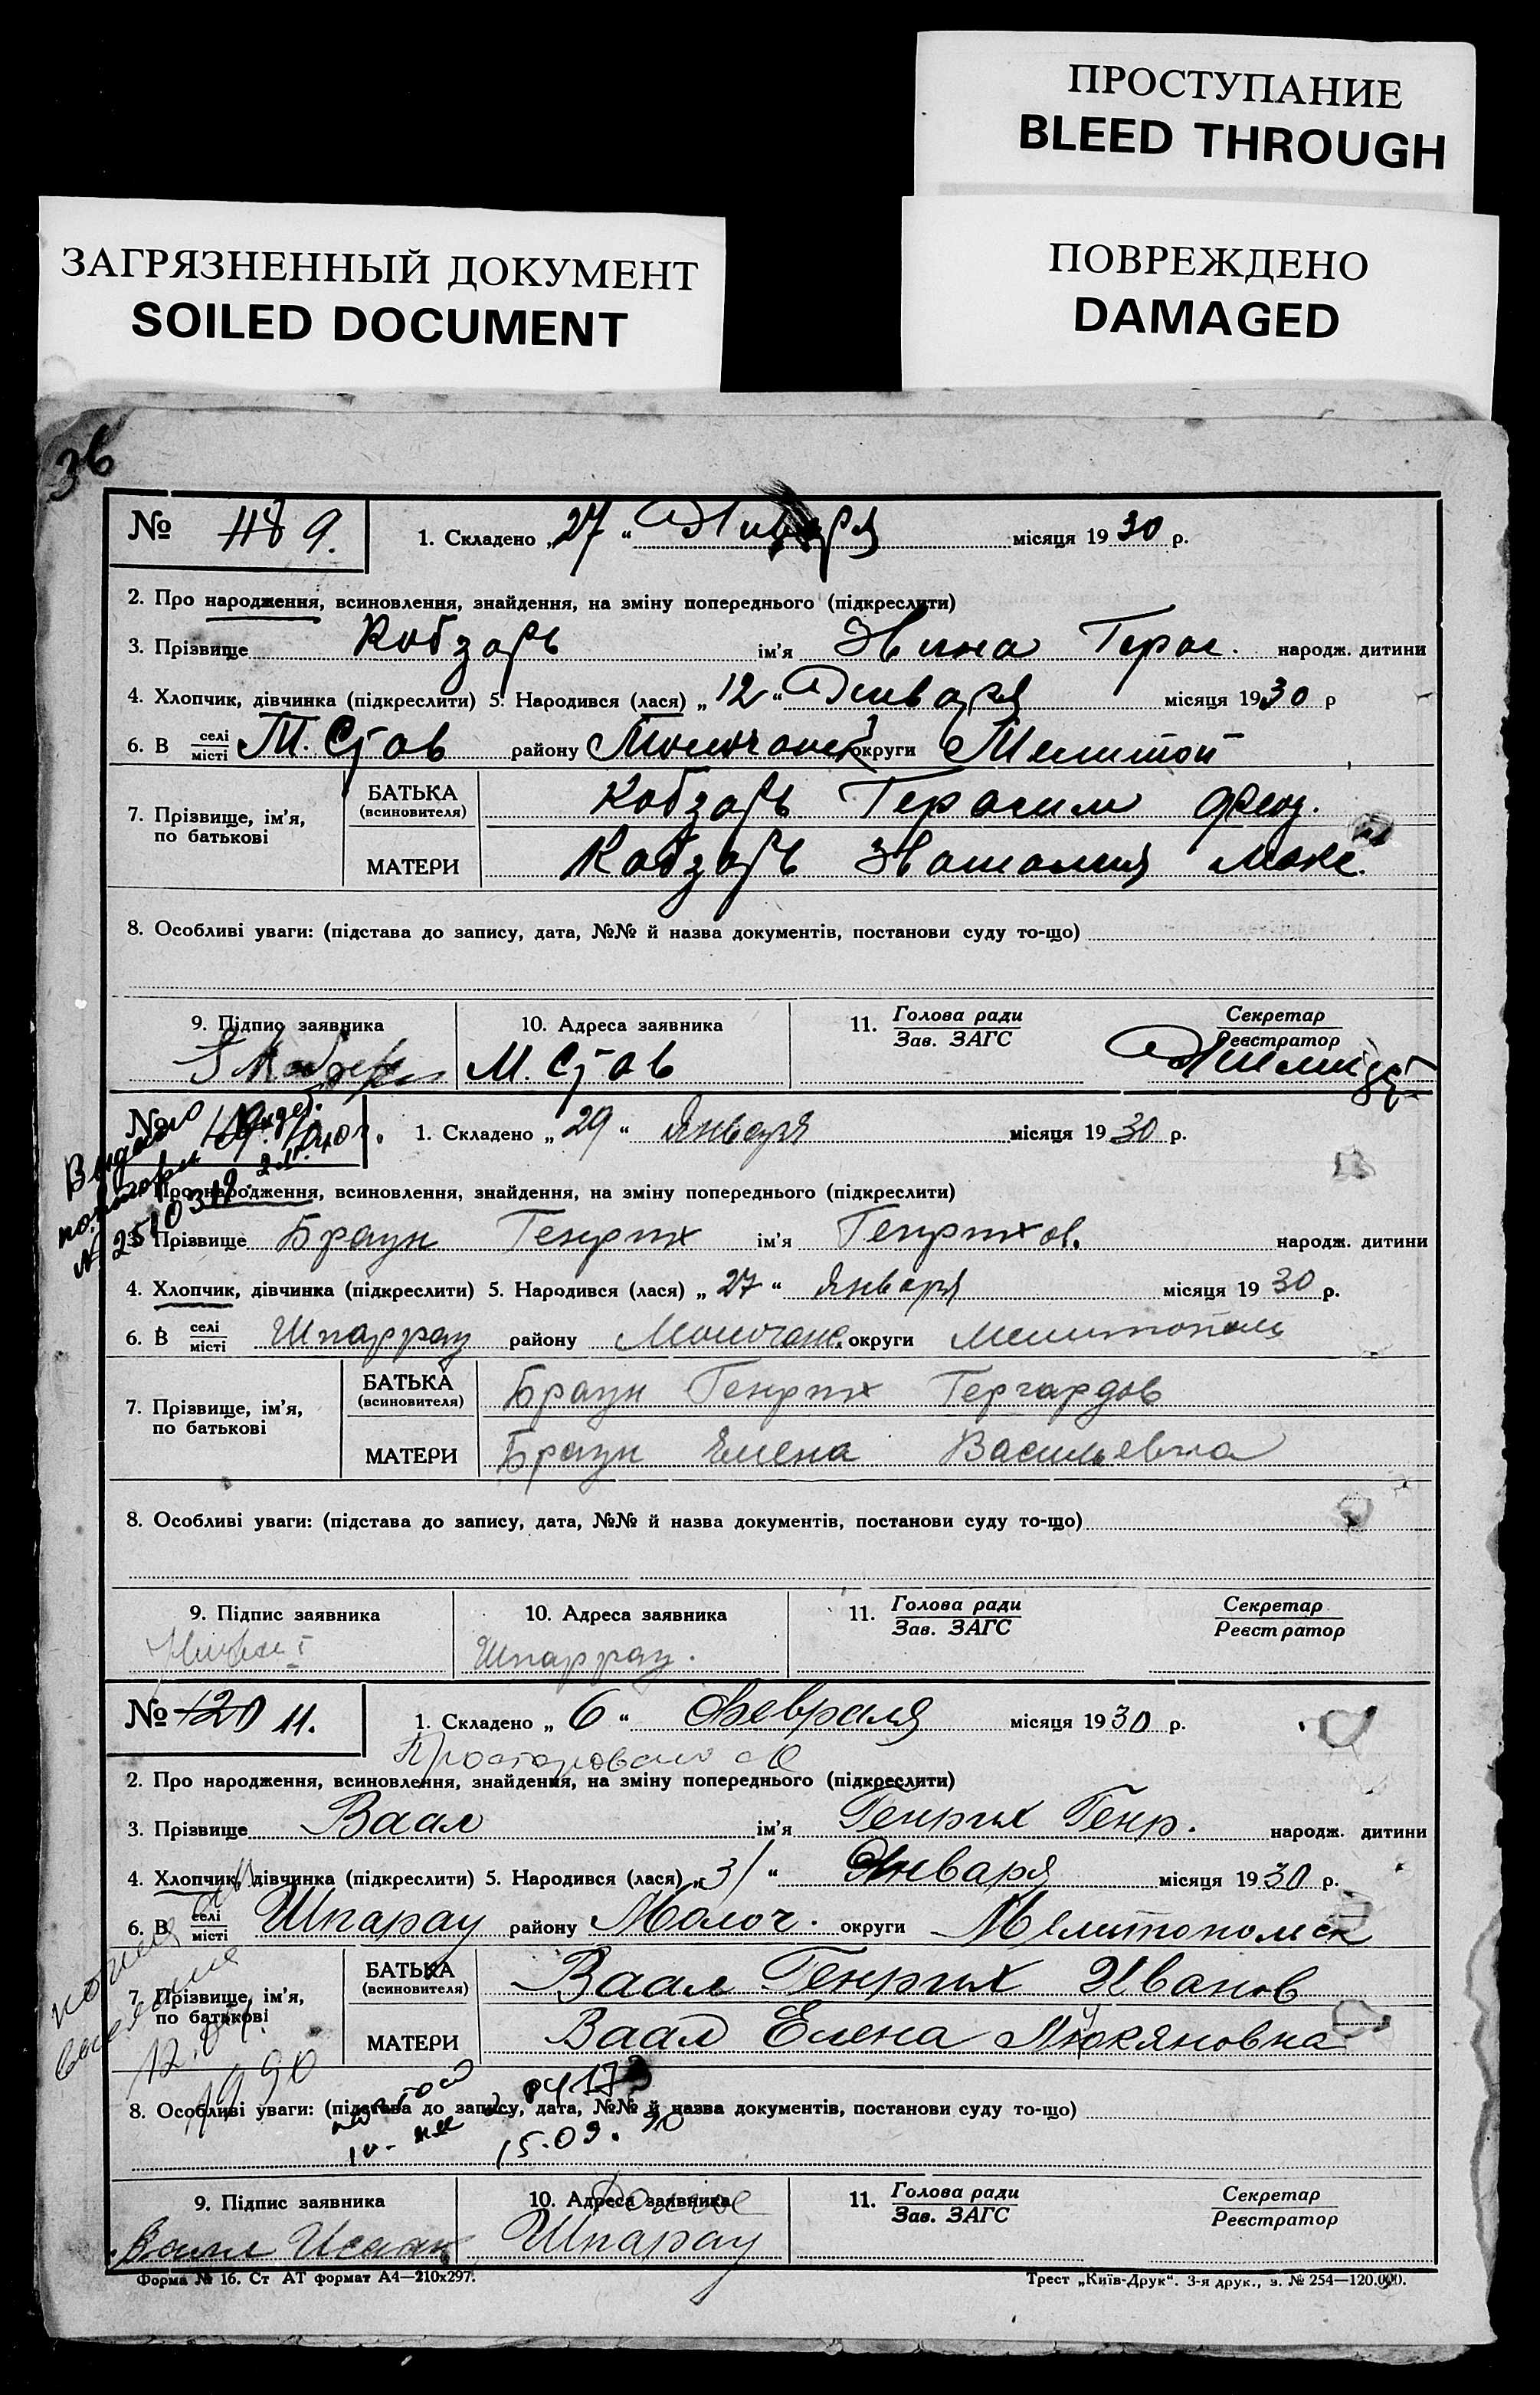 ПРОСТУПАНИЕ
BLEED THROUGH
ЗАГРЯЗНЕННЫЙ ДОКУМЕНТ
SOILED DOCUMENT
ПОВРЕЖДЕНО
DAMAGED
36
№ 118 9. 1. Складено „27“ Января місяця 1930 р.
2. Про народження, всиновлення, знайдення, на зміну попереднього (підкреслити)
3. Прізвище Кобзарь ім'я Нина Герас. народж. дитини
4. Хлопчик, дівчинка (підкреслити) 5. Народився (лася) „12“ Января місяця 1930 р
6. В селі місті М. Стов району Молочанск округи Мелитоп
7. Прізвище, ім'я, по батькові БАТЬКА (всиновителя) Кобзарь Герасим Фед.
МАТЕРИ Кобзарь Наталия Макс.
8. Особливі уваги: (підстава до запису, дата, №№ й назва документів, постанови суду то-що)
9. Підпис заявника 10. Адреса заявника 11. Голова ради Зав. ЗАГС Секретар Реєстратор
М. Стов
№ 119. 10 1. Складено „29“ Января місяця 1930 р.
Про народження, всиновлення, знайдення, на зміну попереднього (підкреслити)
3. Прізвище Браун Генрих ім'я Генрихов. народж. дитини
4. Хлопчик, дівчинка (підкреслити) 5. Народився (лася) „27“ Января місяця 1930 р.
6. В селі місті Шпаррау району Молочанс. округи Мелитополь
7. Прізвище, ім'я, по батькові БАТЬКА (всиновителя) Браун Генрих Гергардов
МАТЕРИ Браун Елена Васильевна
8. Особливі уваги: (підстава до запису, дата, №№ й назва документів, постанови суду то-що)
9. Підпис заявника 10. Адреса заявника 11. Голова ради Зав. ЗАГС Секретар Реєстратор
Шпаррау.
№ 120 11. 1. Складено „6“ Февраля місяця 1930 р.
2. Про народження, всиновлення, знайдення, на зміну попереднього (підкреслити)
3. Прізвище Ваал ім'я Генрих Генр. народж. дитини
4. Хлопчик, дівчинка (підкреслити) 5. Народився (лася) „31“ Января місяця 1930 р.
6. В селі місті Шпарау району Молоч. округи Мелитопольск
7. Прізвище, ім'я, по батькові БАТЬКА (всиновителя) Ваал Генрих Иванов
МАТЕРИ Ваал Елена Люкяновна
12.
1990
8. Особливі уваги: (підстава до запису, дата, №№ й назва документів, постанови суду то-що)
15.09.90
9. Підпис заявника 10. Адреса заявника 11. Голова ради Зав. ЗАГС Секретар Реєстратор
Ваал Исаак Шпарау
Форма № 16. Ст АТ формат А4—210х297.
Трест „Київ-Друк“. 3-я друк., з. № 254—120.000.